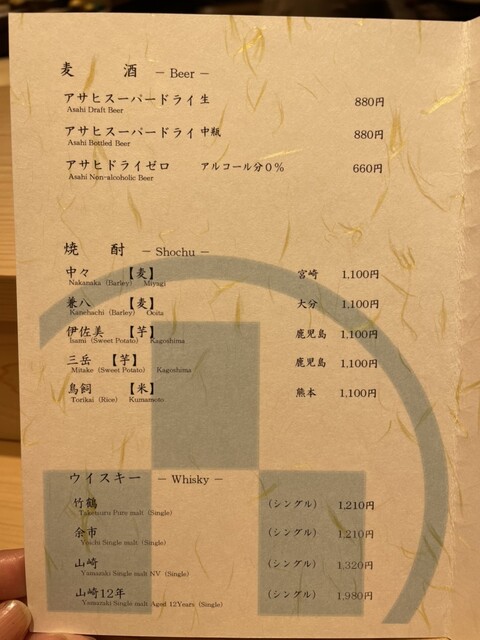 麦 酒 – Beer –
アサヒスーパードライ 生 880円
Asahi Draft Beer
アサヒスーパードライ 中瓶 880円
Asahi Bottled Beer
アサヒドライゼロ アルコール分0% 660円
Asahi Non-alcoholic Beer
焼 酎 – Shochu –
中々 【麦】 宮崎 1,100円
Nakanaka (Barley) Miyagi
兼八 【麦】 大分 1,100円
Kanehachi (Barley) Ooita
伊佐美 【芋】 鹿児島 1,100円
Isami (Sweet Potato) Kagoshima
三岳 【芋】 鹿児島 1,100円
Mitake (Sweet Potato) Kagoshima
鳥飼 【米】 熊本 1,100円
Torikai (Rice) Kumamoto
ウイスキー – Whisky –
竹鶴 (シングル) 1,210円
Taketsuru Pure malt (Single)
余市 (シングル) 1,210円
Yoichi Single malt (Single)
山崎 (シングル) 1,320円
Yamazaki Single malt NV (Single)
山崎12年 (シングル) 1,980円
Yamazaki Single malt Aged 12Years (Single)